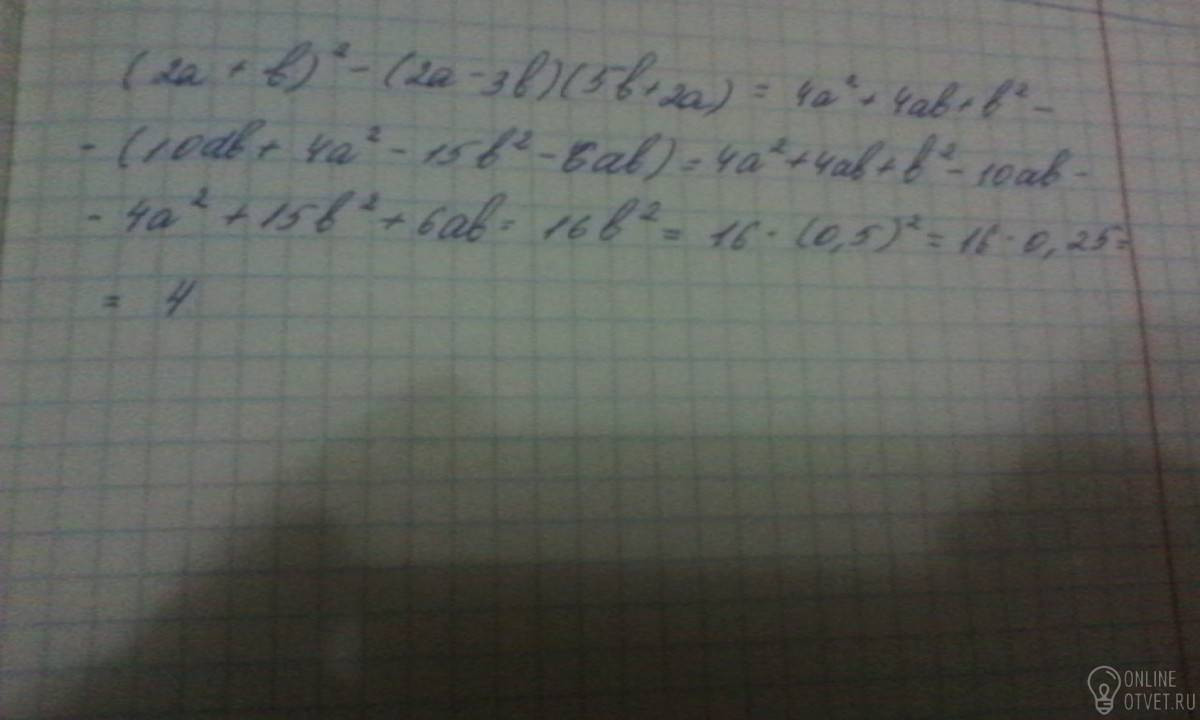 (2a + b)² - (2a - 3b)(5b + 2a) = 4a² + 4ab + b² -
- (10ab + 4a² - 15b² - 6ab) = 4a² + 4ab + b² - 10ab -
- 4a² + 15b² + 6ab = 16b² = 16 · (0,5)² = 16 · 0,25 =
= 4
ONLINE
OTVET.RU